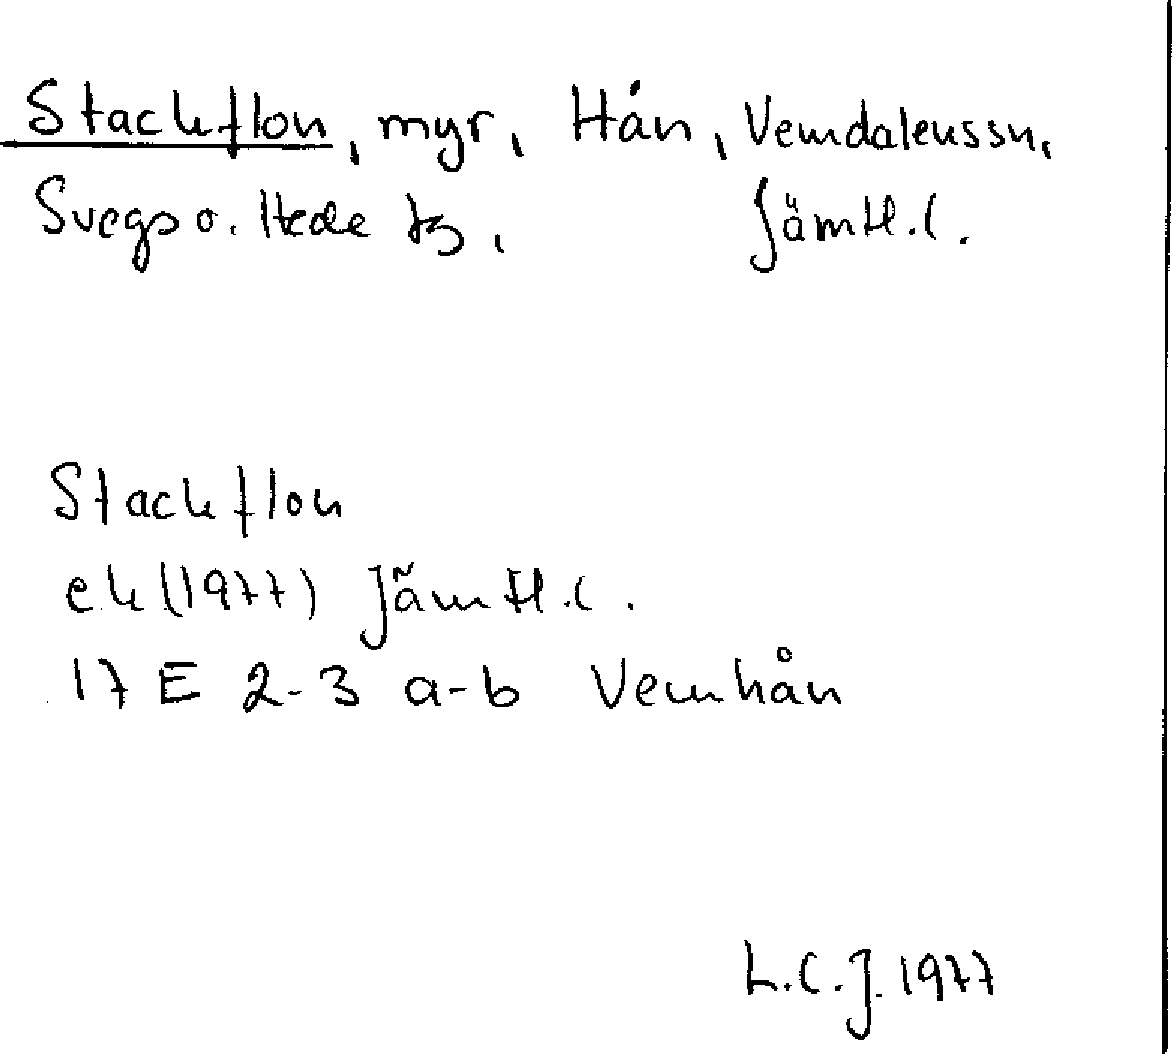 Stackflon, myr, Hån, Vemdalens sn,
Svegs o. Hede tg, Jämtl. l.
Stackflon
ek (1977) Jämtl. l.
17 E 2-3 a-b Vemhån
L.C.J. 1977